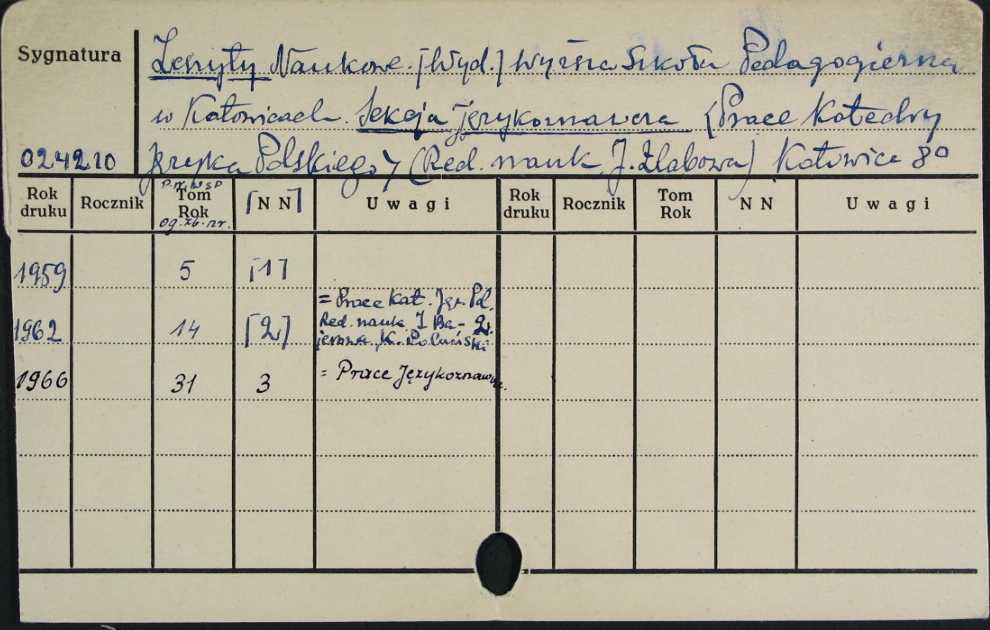 Sygnatura
Zeszyty Naukowe. [Wyd.] Wyższa Szkoła Pedagogiczna
w Katowicach. Sekcja językoznawcza {Prace Katedry
024210
Języka Polskiego} (Red. nauk. J. Żlabowa) Katowice 8°
Rok druku Rocznik Tom Rok og. zb. nr. [NN] Uwagi Rok druku Rocznik Tom Rok NN Uwagi
1959 5 [1]
1962 14 [2] = Prace Kat. Jęz. Pol.
Red. nauk. I. Ba- 2.
jerowa, K.
1966 31 3 = Prace Językoznawcze.